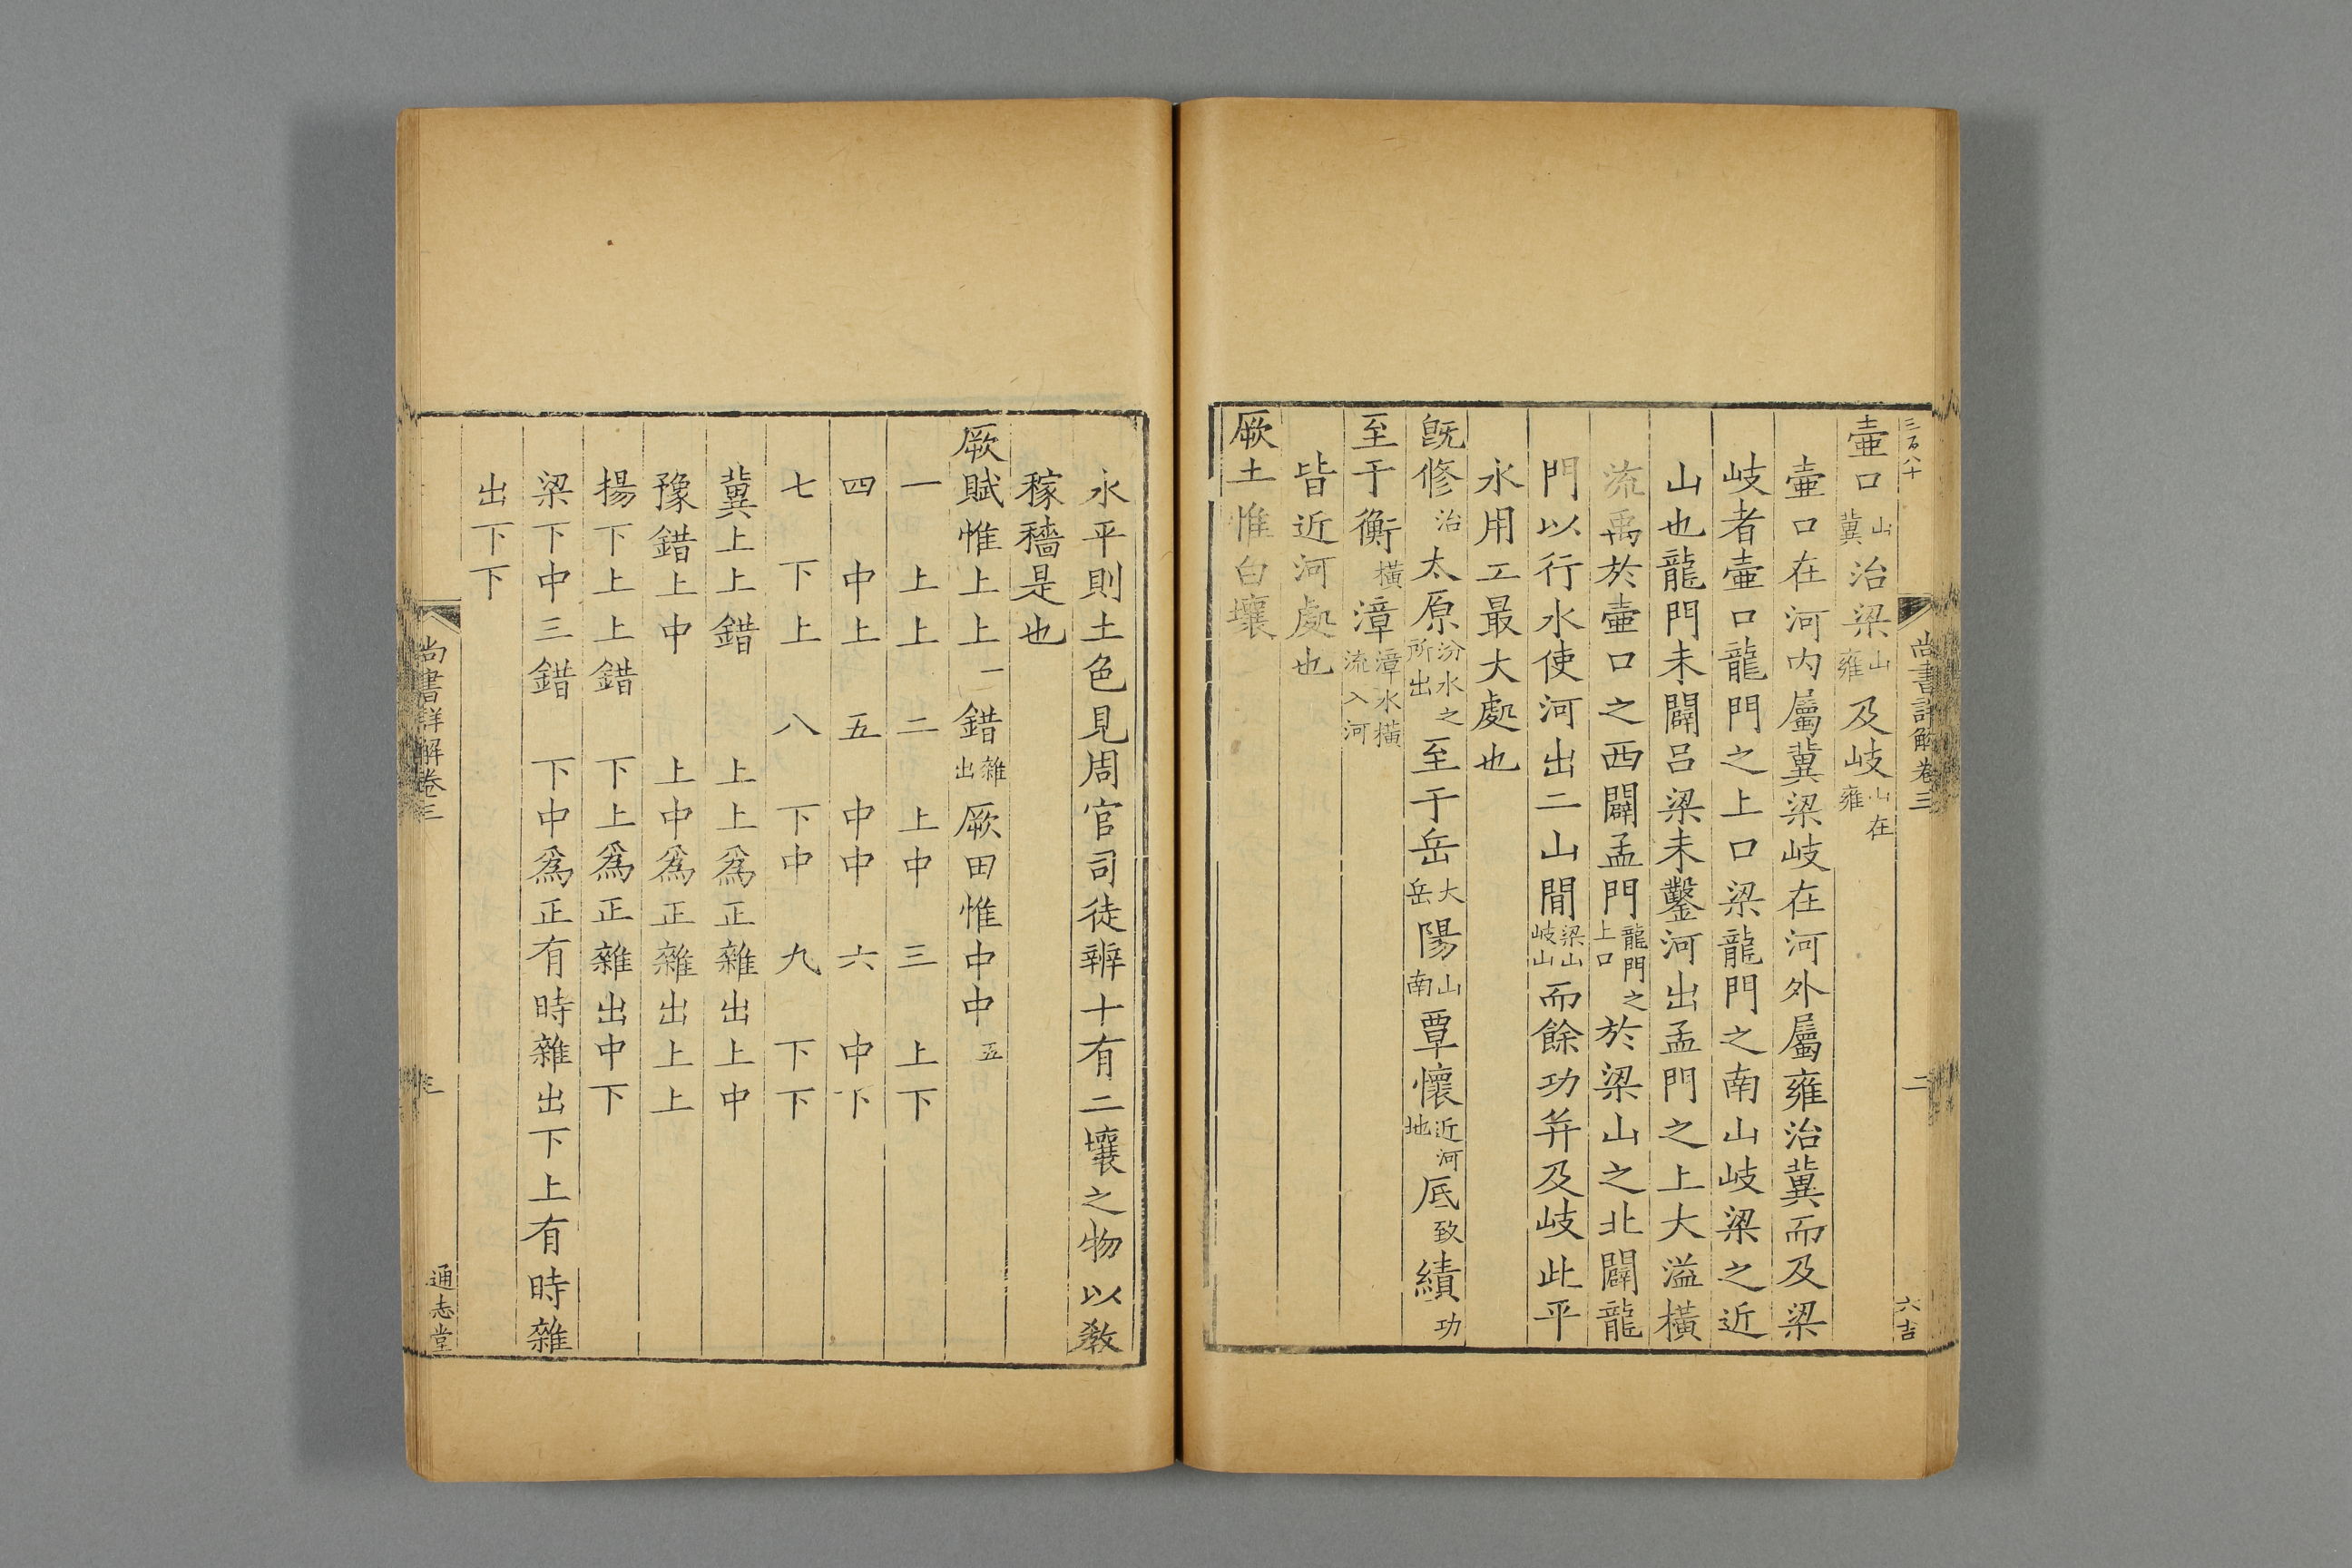 三百八十
尚書詳解卷三
二
六吉
壷口山冀治梁山雍及岐山在雍
壷口在河内屬冀梁岐在河外屬雍治冀而及梁
岐者壷口龍門之上口梁龍門之南山岐梁之近
山也龍門未闢吕梁未鑿河出孟門之上大溢橫
流禹於壷口之西闢孟門龍門之上口於梁山之北闢龍
門以行水使河出二山間梁山岐山而餘功并及岐此平
水用工最大處也
旣修治太原汾水之所出至于岳大岳陽山南覃懷近河地厎致績功
至于衡橫漳漳水橫流入河
皆近河處也
厥土惟白壤
水平則土色見周官司徒辨十有二壤之物以教
稼穡是也
厥賦惟上上一錯雜出厥田惟中中五
一 上上 二 上中 三 上下
四 中上 五 中中 六 中下
七 下上 八 下中 九 下下
冀上上錯 上上爲正雜出上中
豫錯上中 上中爲正雜出上上
揚下上上錯 下上爲正雜出中下
梁下中三錯 下中爲正有時雜出下上有時雜
出下下
尚書詳解卷三
三
通志堂